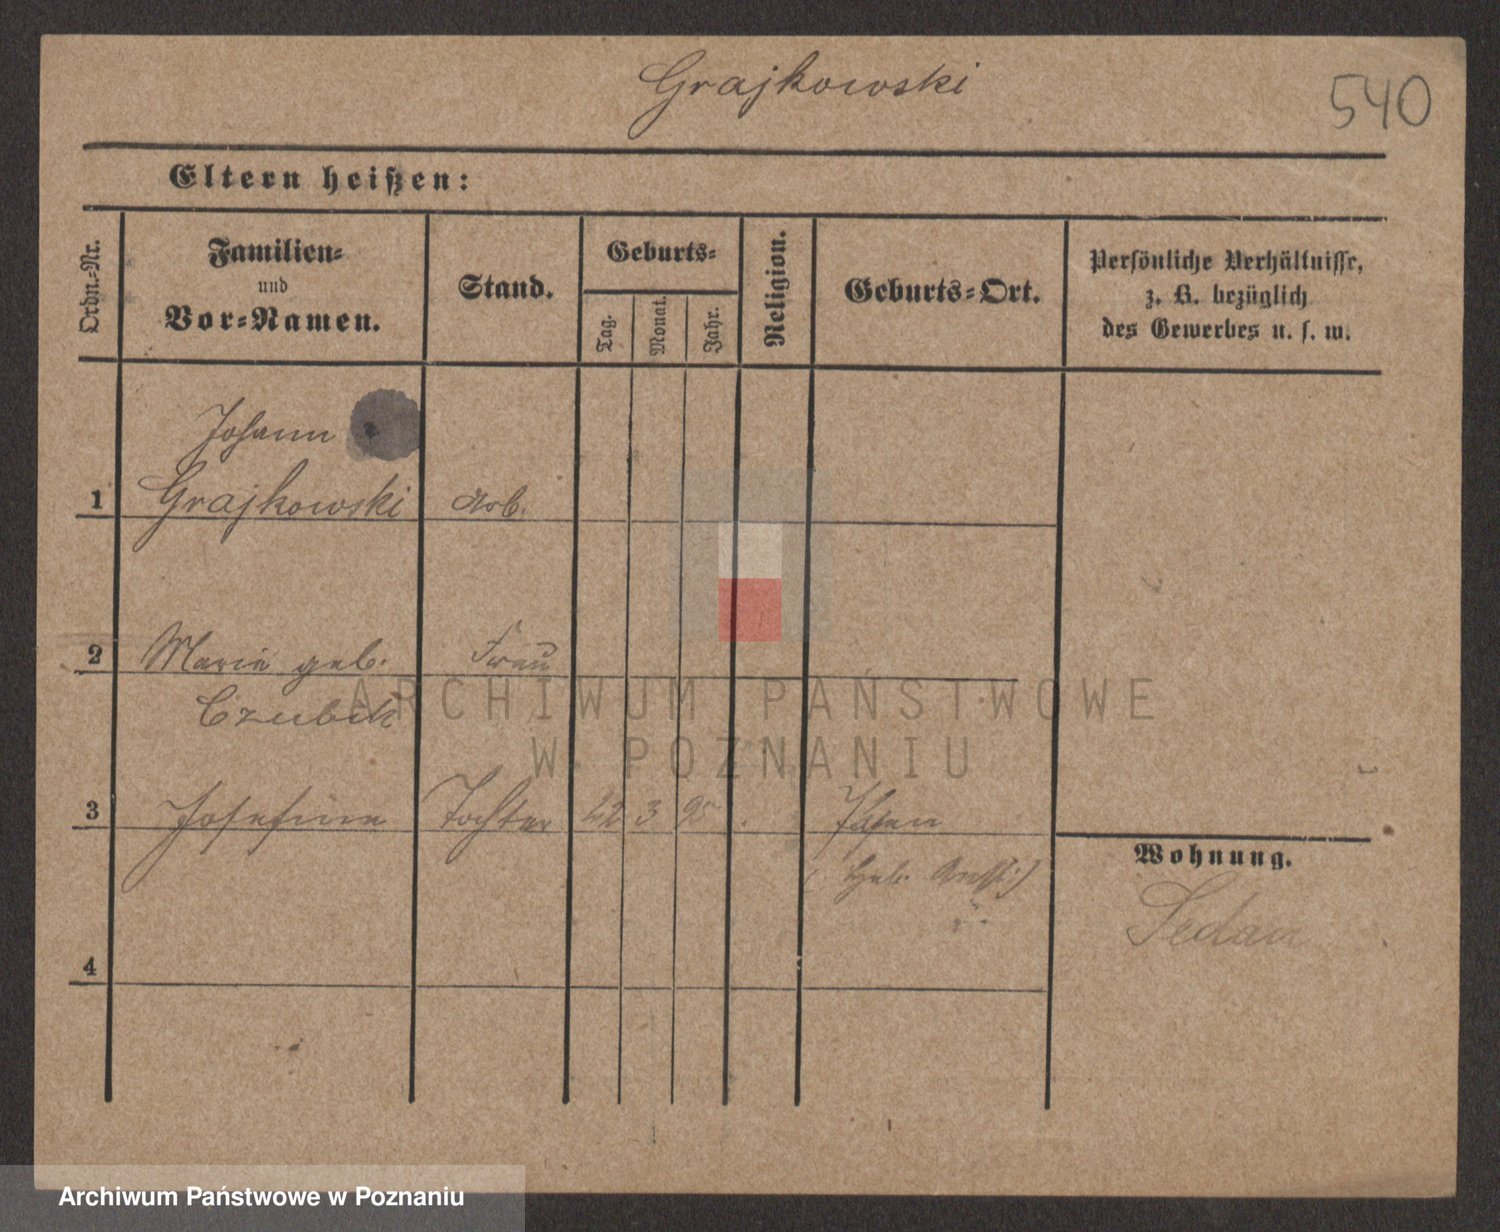 Grajkowski
540
Eltern heißen:
Ordn.-Nr.
Familien-
und
Vor-Namen.
Stand.
Geburts-
Tag.
Monat.
Jahr.
Religion.
Geburts-Ort.
Persönliche Verhältnisse,
z. B. bezüglich
des Gewerbes u. s. w.
Johann
1 Grajkowski Arb.
2 Marie geb. Frau
Czubek
3 Josefine Tochter 22 3 95
Wohnung.
Sedan
4
ARCHIWUM PAŃSTWOWE
W POZNANIU
Archiwum Państwowe w Poznaniu